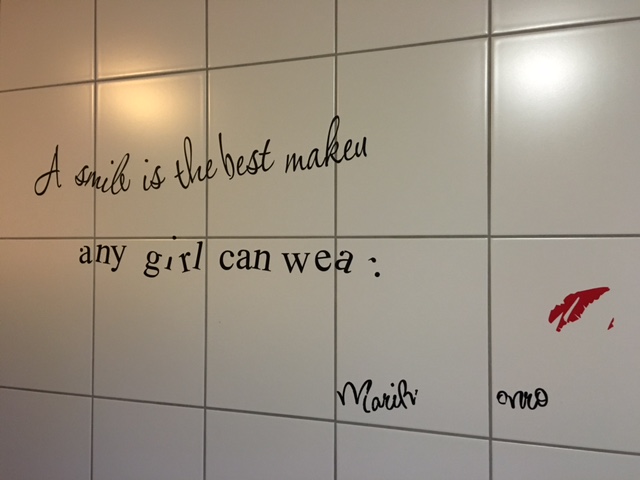 A smile is the best makeu
any girl can wea .
Marily
onro